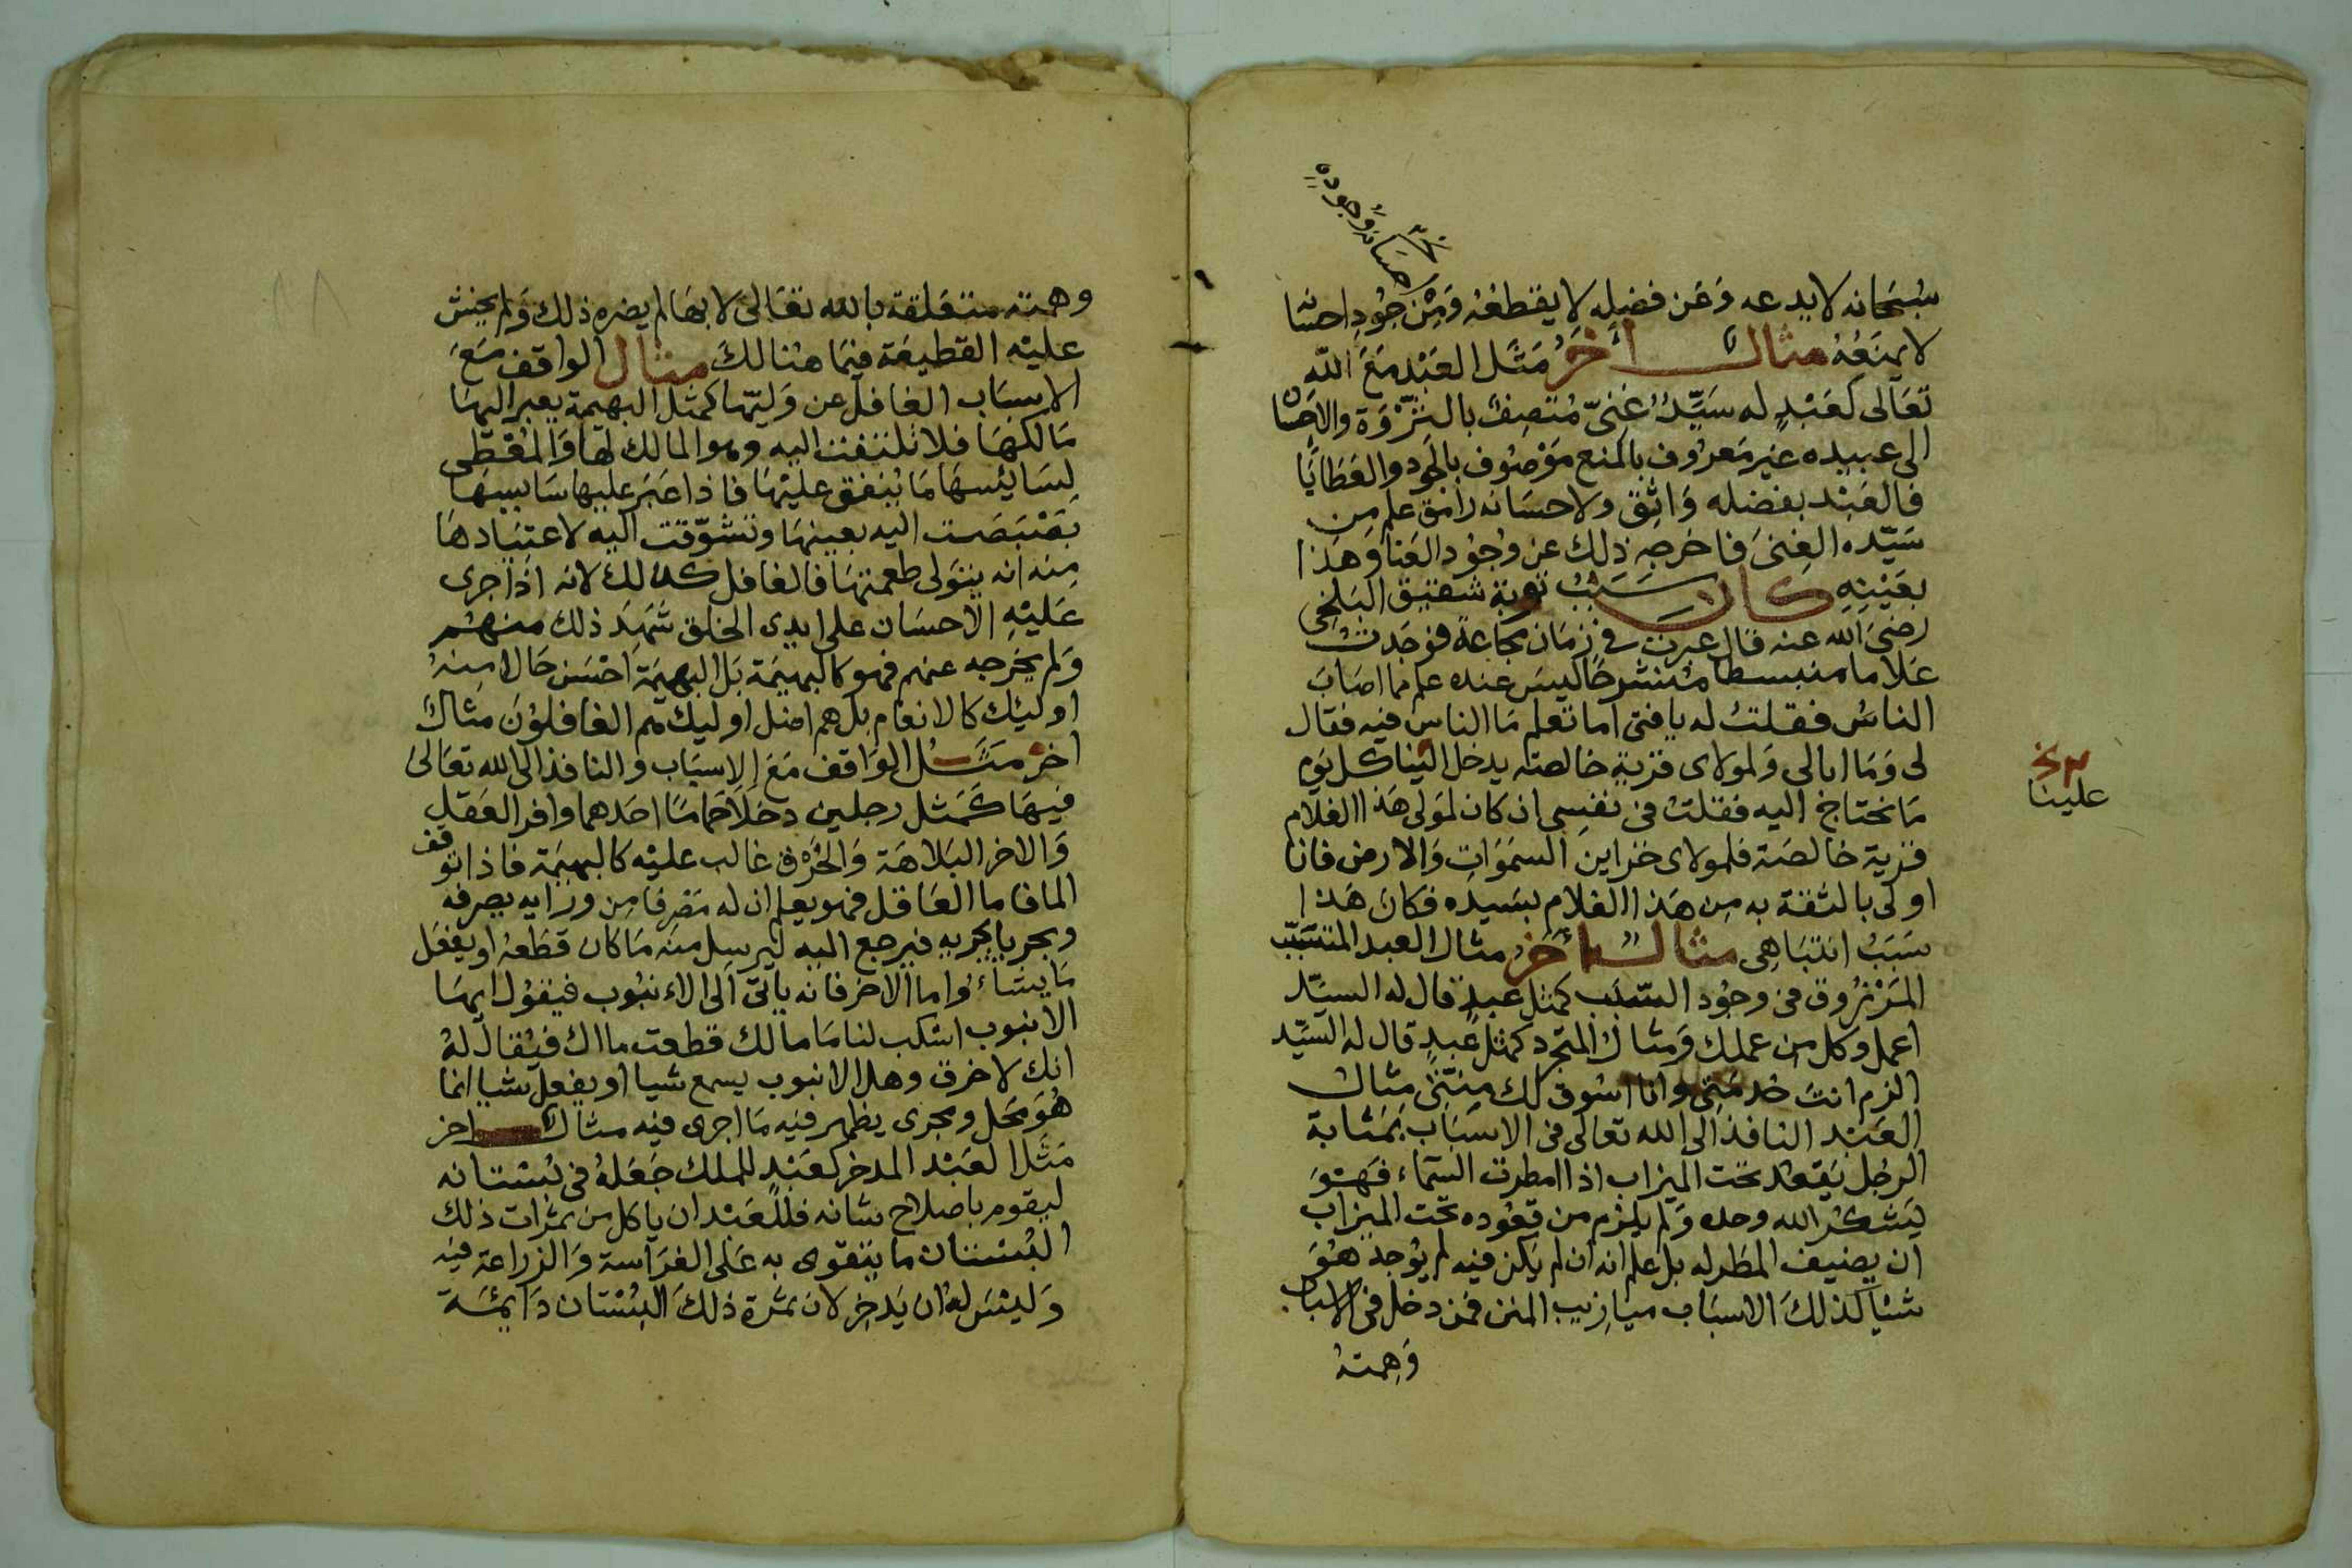 خ احسانه وجوده
سُبحانه لا يدعه وَعَن فضلِه لا يقطعُه وَمِنْ جُودِ احسانه
لا يمنَعُهُ مثال اٰخَرُ مَثَل العَبْد مَعَ اللهِ
تَعَالى كعَبْدٍ له سَيِّدٌ غنىّ مُتصِفٌ بالثَّرْوَة والاحْسَان
الى عبيده غير مَعرُوف بالمنع مَوْصُوف بالجود والعَطَايَا
فالعَبْد بفضله وَاثِق ولاحسَانه رامق علم مِن
سَيّده الغِنىَ فاخرجه ذلِك عن وُجُود العَنا وَهذا
بعَيْنِهِ كان سَبَبُ توبة شقيق البَلخِى
رضىَ الله عنه قال عبرت في زمَان مجَاعة فوجَدتُ
غلاما منبسطا منشرحًا ليسَ عنده علم مما اصَابَ
الناسُ فقلتُ له يا فتى اما تعلم مَا الناس فيه فقال
لى وَمَا ابالى وَلمولاى قريةٍ خالصته يدخل الينا كل يَومٍ
مَا نحتاج اليه فقلتُ فى نفسِى ان كان لمَولى هَذا الغلام
قرية خالصَة فلمولاى خزاين السمَوَاتِ وَالارض فانا
اولى بالثقة به مِن هَذا الغلام بسَيده فكانَ هَذا
سَبَبُ انتبَاهِى مثال اٰخَرُ مثال العبد المتسَبّب
المَرْزُوق فى وجُود السَّبَب كمثل عبدٍ قال له السيّد
اعمل وكل من عملك وَمثال المتجرد كمثل عَبدٍ قال له السيّد
الزم انت خدمَتِى وانا اسُوق لك مِنّتى مِثال
العَبْد النافذ الى الله تعالى فى الاسبَاب بمَثابة
الرجُل يَقعُد تحت الميزاب اذا امطرت السّمَاء فهَوَ
يَشكُر الله وحده وَلم يلزم من قعُوده تحت الميزاب
ان يضيف المطر له بل علم انه ان لم يَكن فيه لم يُوجد هُوَ
شيْا كذلك الاسبَاب ميازِيب المنن فمن دخل فى الاسباب
وَهِمتهُ
خ
علينا
وهمته متعَلقة بالله تعَالى لا بهَا لم يضره ذلك وَلم يخش
عليْهِ القطيعَة فيمَا هنالكَ مثال الواقف مَعَ
الاسبَاب الغافل عن وَليّها كمثل البهيمة يعبر اليهَا
مَالكهَا فلا تلتفت اليه وهو المالك لهَا وَالمُعْطى
لسَايسهَا مَا يُنفق عليْهَا فاذا عَبَر عليها سَايسهَا
بَصْبَصَت اليه بعينهَا وتشوّقت اليه لاعتيَادهَا
مِنه انه يتولى طعمتهَا فالغافل كذلك لانه اذا جرى
عَليْهِ الاحسَان على ايدى الخلق شهِدَ ذلك منهُم
وَلم يخرجه عنهم فهو كالبهيمَة بَل البهيمَة احْسَن حَالا مِنهُ
اوليْك كالانعَام بل هم اضل اوليك هم الغافلوُنَ مِثال
اخر مَثَل الوَاقف مَعَ الاسبَاب والنافذ الى الله تعَالىَ
فيهَا كَمَثل رجلين دخلاَ حَمامًا احَدهما وافر العَقل
وَالاخر البَلاهَة وَالخُرْق غالب عليْه كالبهيمَة فاذا توقف
الما فاما العَاقل فهو يعلم ان له مَصْرفا مِن ورايه يصرفه
ومجريا يجريه فيرجع اليه ليرسِل منه مَا كان قطعَهُ او يفعَل
مَا يشاءُ واما الاخر فانه ياتى الى الانبُوب فيقوُل ايهَا
الانبوب اسْكب لنا مَا مَالك قطعت ماك فيُقال لهُ
انك لاخرق وهل الانبوب يسمع شيا او يفعل شيا انما
هُوَ مَحل ومجرى يظهر فيْه مَا اجرى فيه مثال اخر
مَثَل العَبْد المدخر كعَبْدٍ للملك جَعَلهُ فى بُسْتانه
ليقوم باصلاح شانه فللعَبْد ان ياكل من ثمرَات ذلك
البُسْتان ما يتقوى به عَلى الغرَاسة وَالزراعة فيْه
وَليْسَ لهُ ان يَدخِر لان ثمرَة ذلكَ البُسْتان دَايمَة